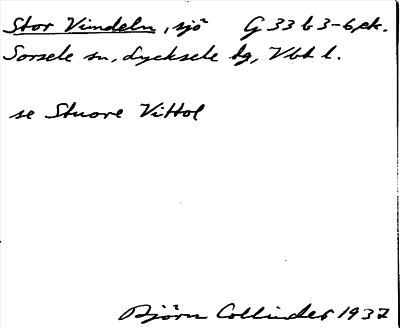 Stor Vindeln, sjö G 33 b 3-6 pk.
Sorsele sn, Lycksele tg, Vbt l.
se Stuore Vittol
Björn Collinder 1937